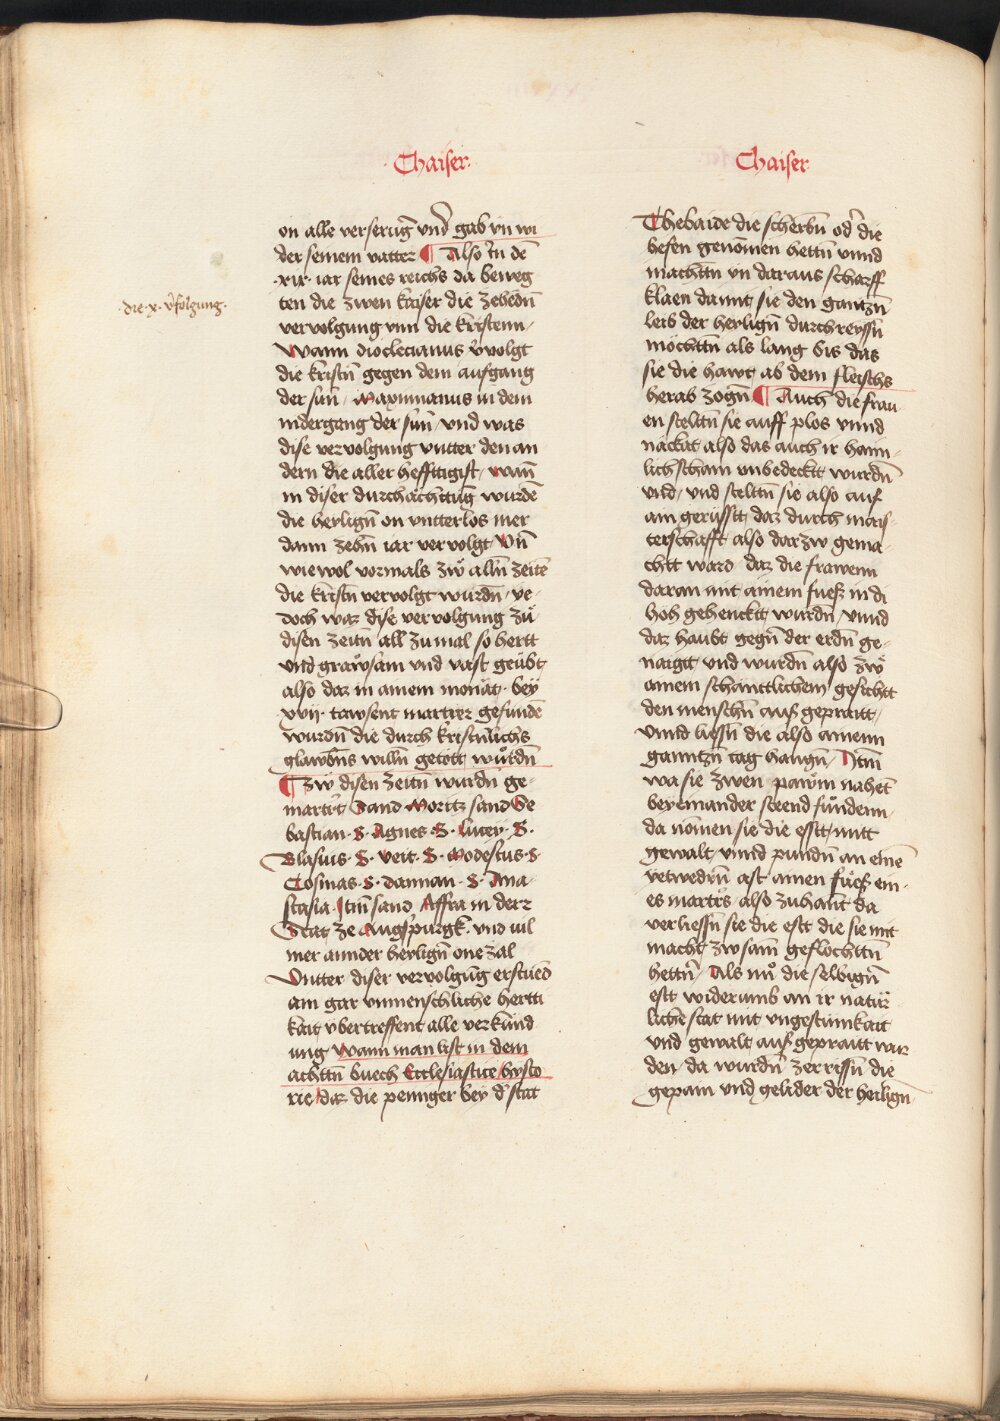 Chaiser
on alle verserūg vnd gab yn wi
der seinem vatter ¶ Also yn dē
·xix· iar seines reichs da beweg
ten die zwen kaiser die zehēdn̄
vervolgung vnn die kristenn/
Wann dioclecianus v̓volgt
die kristn̄ gegen dem aufgang
der sun̄/ Maximianus in dem
nidergang der sun̄/ vnd was
dise vervolgung vntter den an
dern die aller hefftigist/ wan̄
in diser durchächttūg wurdē
die heylign̄ on vntterlos mer
dann zehn̄ iar vervolgt/ Vn̄
wiewol vormals zw̏ alln̄ zeitē
die kristn̄ vervolgt wurdn̄/ ye-
doch waz dise vervolgung zu̎
disen zeitn̄ all zu mal so hertt
vnd grawsam vnd vast geübt
also daz in ainem monat · bey
·xvij· tawsent martrer gefundē
wurdn̄ die durch kristnlichs
glawbn̄s willn̄ getött wurdn̄
¶ Zw disen zeitn̄ wurdn̄ ge-
martrt̓ Sand Moritz sand Se
bastian · S· Agnes ·S· Lucey ·S·
Blasius ·S· Veit ·S· Modestus ·S·
Cosmas ·S· damian ·S· Ana-
stasia · Itm̄ sand Affra in der
Stat ze Augspurgk · vnd vil
mer annder heylign̄ one zal
Vntter diser vervolgūg erstuēd
ain gar vnmenschliche hertti
kait vbertreffent alle verkünd
ung wann man list in dem
achttn̄ buech Ecclesiastice hysto
rie/ daz die peiniger bey d̓ stat
·die·x·v̓folgung·
Chaiser
Thebaide die scherbn̄ od̓ die
hefen genōmen hettn̄ vnnd
machttn̄ vn daraus scharff
klaen damit sie den gantzn̄
leib der heylign̄ durchreyssn̄
möchttn̄ als lang bis das
sie die hawt ab dem fleischs
herab zogn̄ ¶ Auch die frau
en stelltn̄ sie auff plos vnnd
nackat also das auch ir haim-
lich scham vnbedeckt wurdn̄
vnd/ vnd stelltn̄ sie also auf
ain gerüsstt daz durch mais-
terschafft also darzw gema-
chtt ward daz die frawenn
daran mit ainem fuesz in di
hoh gehenckt wurdn̄/ vnnd
daz haubt gegn̄ der erdn̄ ge-
naigtt vnd wurdn̄ also zw̏
ainem schanttlichem gesichtt
den menschn̄ ausz gepraitt/
vnnd liessn̄ die also ainenn
ganntzn̄ tag hangn̄/ Itm̄
wa sie zwen pawm nahēt
bey einander steend fundenn/
da nōmen sie die esstt mitt
gewalt/ vnnd pundn̄ an einē
yetwedrn̄ ast ainen fuesz ein-
es martrs also zuhant da
verliessn̄ sie die estt die sie mit
macht zw sam̄ geflochttn̄
hettn̄/ Als nu̎ die selbign̄
estt widerumb an ir natür-
lichē stat mit vngestümkait
vnd gewalt ausz gepraitt wur
den da wurdn̄ zerrissn̄ die
gepain vnd gelider der heilign̄